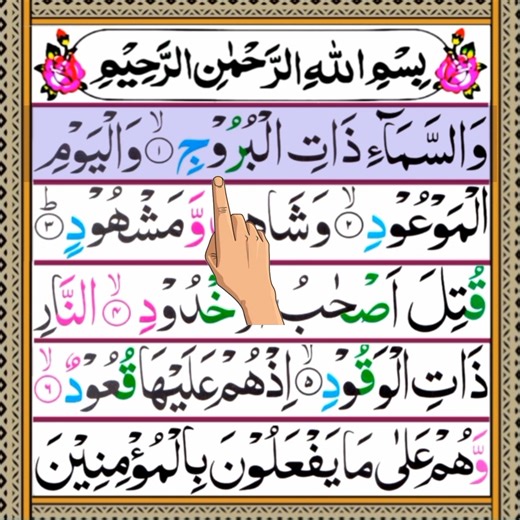 بِسْمِ اللهِ الرَّحْمٰنِ الرَّحِيْمِ
وَالسَّمَآءِ ذَاتِ الْبُرُوْجِ ۙ۱ وَالْيَوْمِ
الْمَوْعُوْدِ ۙ۲ وَشَاهِدٍ وَّ مَشْهُوْدٍ ؕ۳
قُتِلَ اَصْحٰبُ الْاُخْدُوْدِ ۙ۴ النَّارِ
ذَاتِ الْوَقُوْدِ ۙ۵ اِذْهُمْ عَلَيْهَا قُعُوْدٌ ۙ۶
وَّهُمْ عَلٰى مَا يَفْعَلُوْنَ بِالْمُؤْمِنِيْنَ